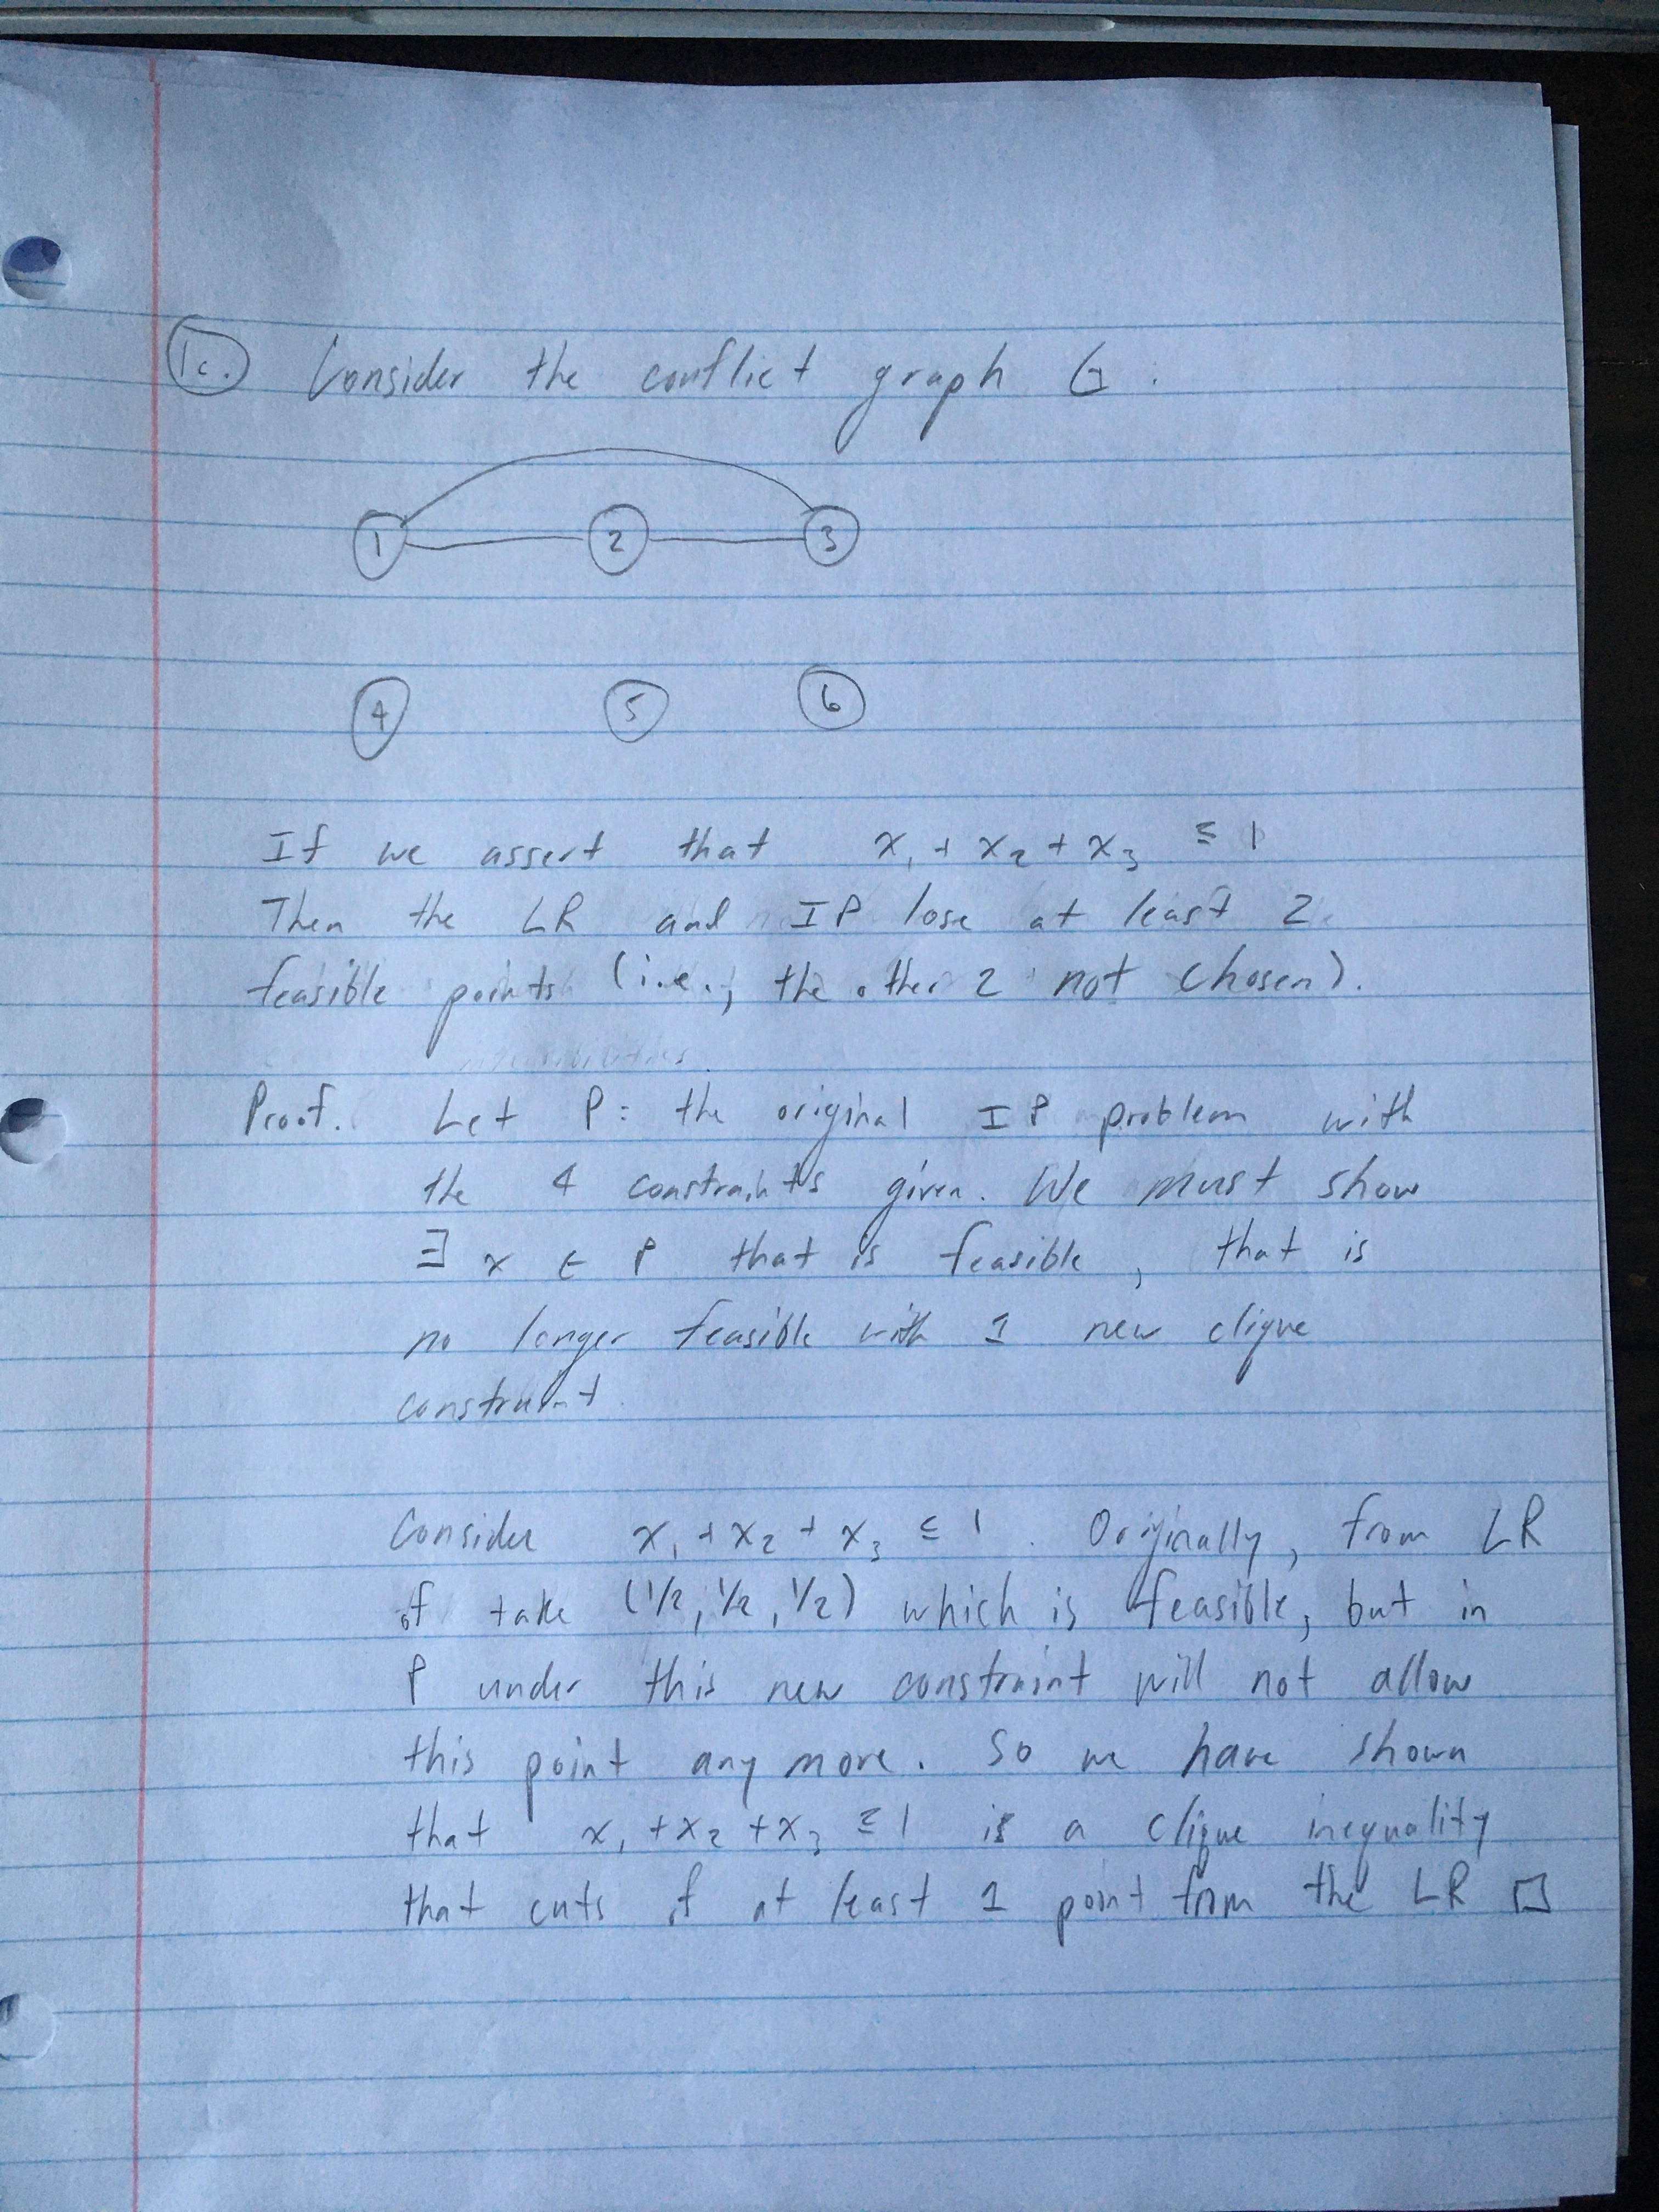 1c. Consider the conflict graph G:
1 2 3
4 5 6
If we assert that x₁ + x₂ + x₃ ≤ 1
Then the LR and IP lose at least 2
feasible points (i.e., the other 2 not chosen).
Proof. Let P = the original IP problem with
the 4 constraints given. We must show
∃ x ∈ P that is feasible, that is
no longer feasible with 1 new clique
constraint.
Consider x₁ + x₂ + x₃ ≤ 1. Originally, from LR
if take (1/2, 1/2, 1/2) which is feasible, but in
P under this new constraint will not allow
this point any more. So we have shown
that x₁ + x₂ + x₃ ≤ 1 is a clique inequality
that cuts of at least 1 point from the LR □